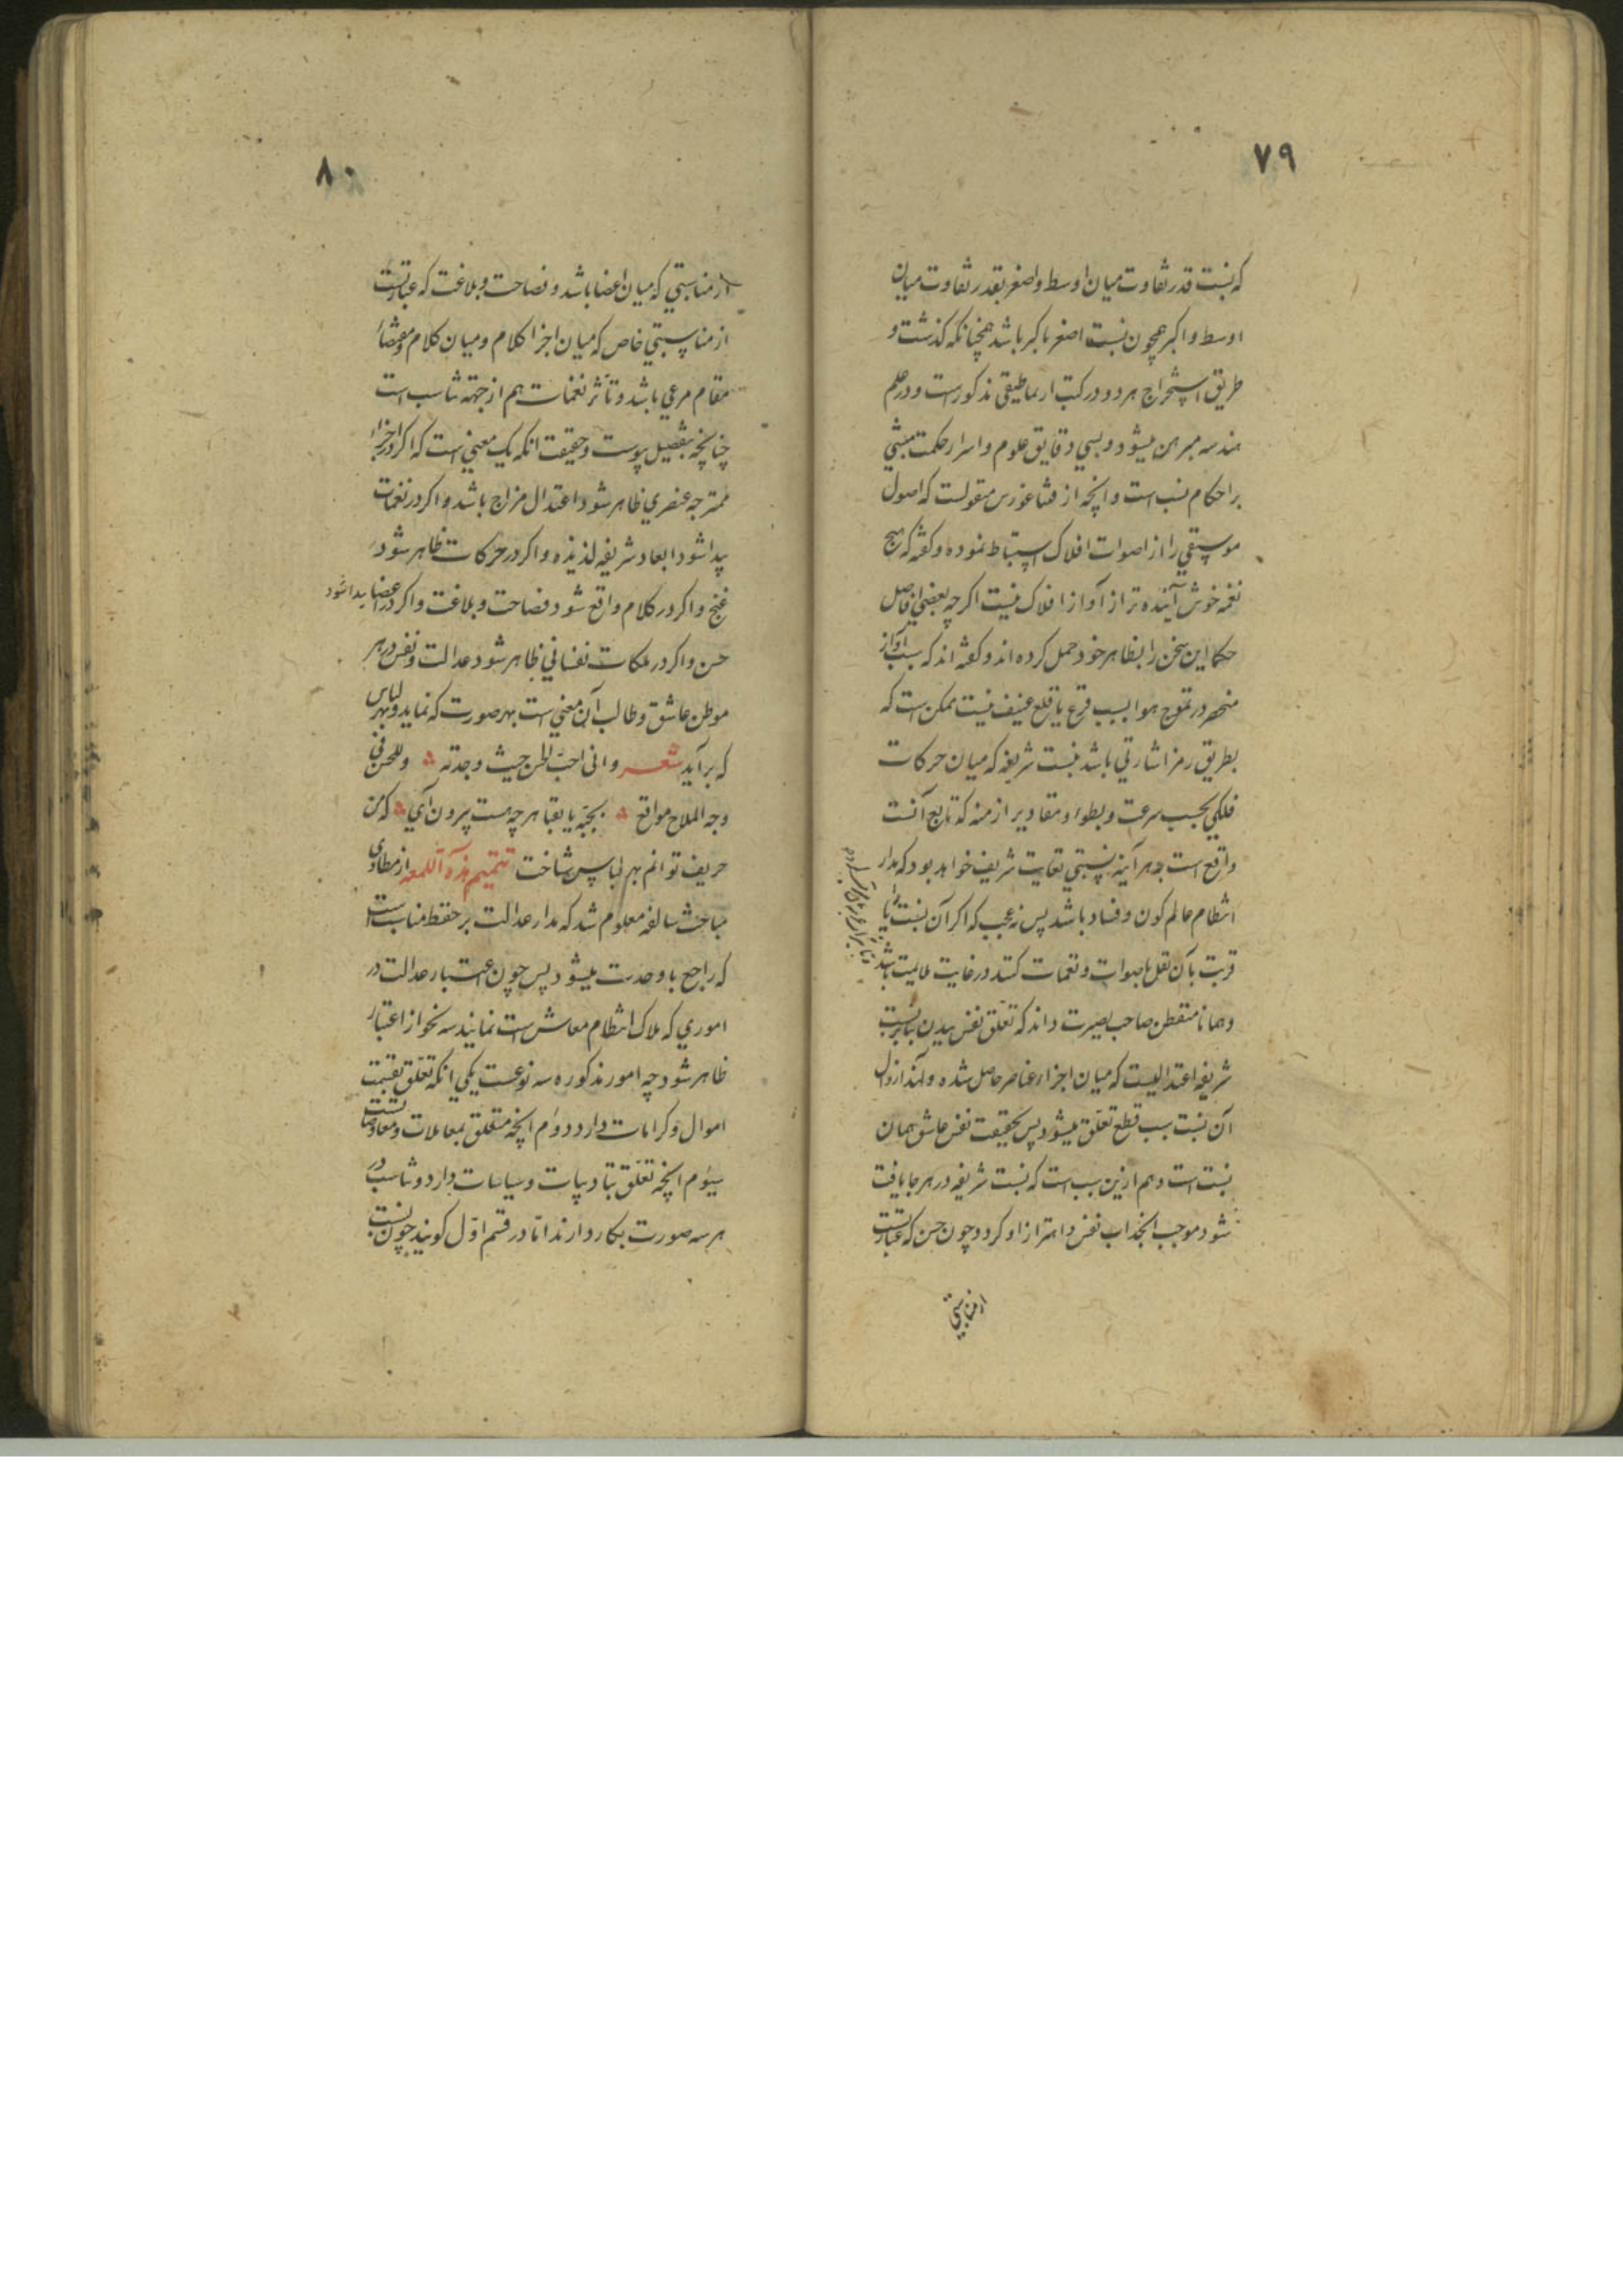 ٧٩
که نسبت قدر تفاوت میان اوسط و اصغر بقدر تفاوت میان
اوسط و اکبر همچون نسبت اصغر باکبر باشد همچنانکه گذشت و
طریق استخراج هر دو در کتب ارثماطیقی مذکورست و در علم
هندسه مبرهن میشود و بسی دقایق علوم و اسرار حکمت مبتنی
بر احکام نسب است و انچه از فیثاغورس منقولست که اصول
موسیقی را از اصوات افلاک استنباط نموده و گفته که هیچ
نغمه خوش آینده تر از آواز افلاک نیست اگر چه بعضی افاضل
حکما این سخن را بظاهر خود حمل کرده اند و گفته اند که سبب آواز
منحصر در تموج هوا بسبب قرع یا قلع عنیف نیست ممکن است که
بطریق رمز اشارتی باشد بنسبت شریفه که میان حرکات
فلکی بحسب سرعت و بطوء و مقادیر ازمنه که تابع آنست
واقع است چه هر آینه نسبتی بغایت شریف خواهد بود که مدار
انتظام عالم کون و فساد باشد پس نه عجب که اگر آن نسبت را یا
قریب بآن نقل باصوات و نغمات کنند در غایت ملایمت باشد
و همانا متفطن صاحب بصیرت داند که تعلق نفس ببدن بنابر نسبت
شریفه اعتدالیست که میان اجزاء عناصر حاصل شده و لهذا زوال
آن نسبت سبب قطع تعلق میشود پس بحقیقت نفس عاشق همان
نسبت است و هم ازین سبب است که نسبت شریفه در هر جا یافت
شود موجب انجذاب نفس و اهتزاز او گردد چون حسن که عبارتست
از مناسبتی
٨٠
از مناسبتی که میان اعضا باشد و فصاحت و بلاغت که عبارتست
از مناسبتی خاص که میان اجزا کلام و میان کلام و مقتضاء
مقام مرعی باشد و تاثر نغمات هم از جهة تناسب است
چنانچه بتفصیل پیوست و حقیقت انکه یک معنی است که اگر در اجزاء
ممترجه عنصری ظاهر شود اعتدال مزاج باشد و اگر در نغمات
پیدا شود ابعاد شریفه لذیذه و اگر در حرکات ظاهر شود
غنج و اگر در کلام واقع شود فصاحت و بلاغت و اگر در اعضا پیدا شود
حسن و اگر در ملکات نفسانی ظاهر شود عدالت و نفس در هر
موطن عاشق و طالب آن معنی است بهر صورت که نماید و بهر لباس
که برآید شعر وانی احب الحسن حیث وجدته ه وللحسن فی
وجه الملاح مواقع ه بجبه یا بقبا هر چه هست بیرون آی ه که من
حریف توانم بهر لباس شناخت تتمیم هذه اللمعه از مطاوی
مباحث سالفه معلوم شد که مدار عدالت بر حفظ مناسبات است
که راجع باوحدت میشود پس چون اعتبار عدالت در
اموری که ملاک انتظام معاش است نمایند سه نحو از اعتبار
ظاهر شود چه امور مذکوره سه نوعست یکی انکه تعلق بقسمت
اموال و کرامات دارد دوم انچه متعلق بمعاملات و معاوضاتست
سیوم انچه تعلق بتادیبات و سیاسات دارد و تناسب در
هر سه صورت بکار دارند اما در قسم اول گویند چون نسبت